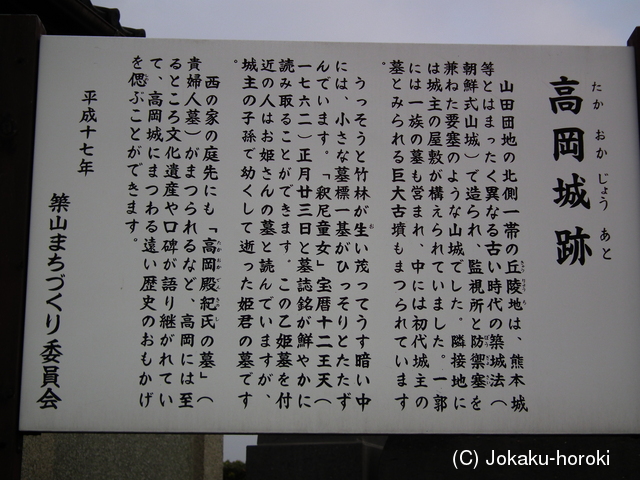 高岡城跡
たか おか じょう あと
山田団地の北側一帯の丘陵地は、熊本城
等とはまったく異なる古い時代の築城法（
朝鮮式山城）で造られ、監視所と防禦塞を
兼ねた要塞のような山城でした。隣接地に
は城主の屋敷が構えられていました。一郭
には一族の墓も営まれ、中には初代城主の
墓とみられる巨大古墳もまつられています
。
うっそうと竹林が生い茂ってうす暗い中
には、小さな墓標一基がひっそりとたたず
んでいます。「釈尼童女」宝暦十二壬天（
一七六二）正月廿三日と墓誌銘が鮮やかに
読み取ることができます。この乙姫墓を付
近の人はお姫さんの墓と読んでいますが、
城主の子孫で幼くして逝った姫君の墓です
。
西の家の庭先にも「高岡殿紀氏の墓」（
貴婦人墓）がまつられるなど、高岡には至
るところ文化遺産や口碑が語り継がれてい
て、高岡城にまつわる遠い歴史のおもかげ
を偲ぶことができます。
平成十七年
築山まちづくり委員会
(C) Jokaku-horoki